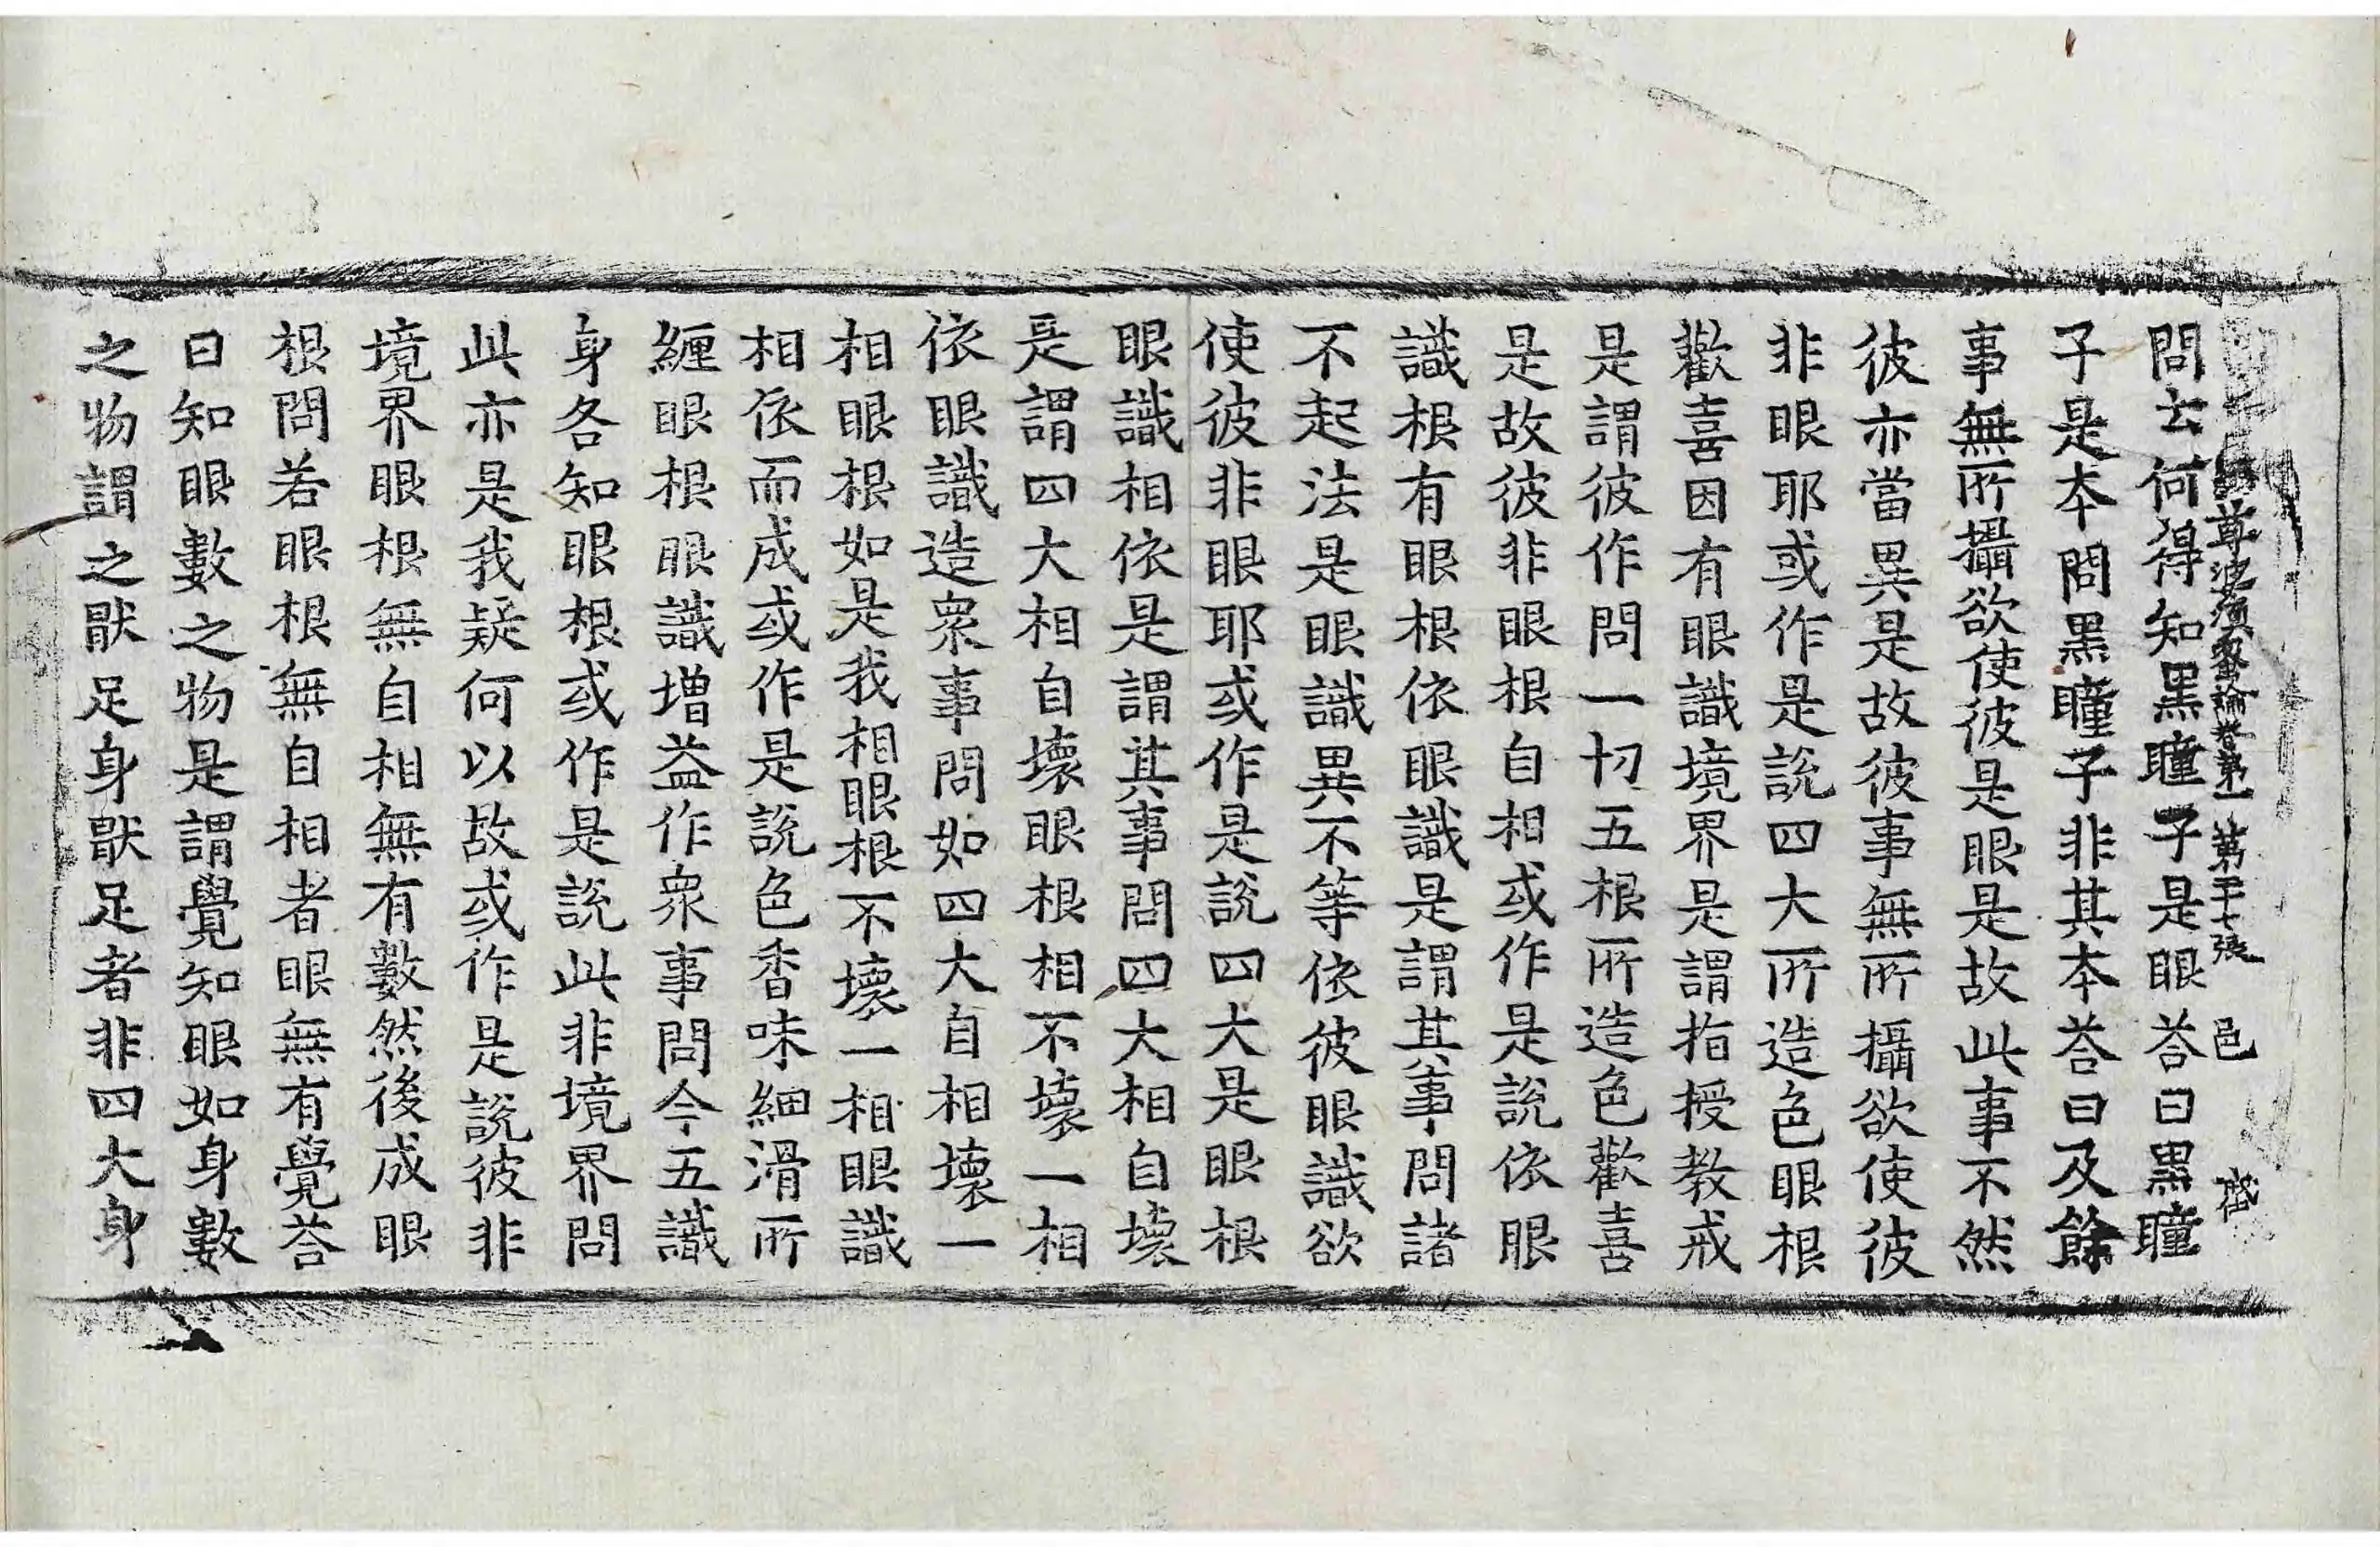 尊婆須蜜論卷第一 第二十七張 邑
問云何得知黑瞳子是眼荅曰黑瞳
子是本問黑瞳子非其本荅曰及餘
事無所攝欲使彼是眼是故此事不然
彼亦當異是故彼事無所攝欲使彼
非眼耶或作是說四大所造色眼根
歡喜因有眼識境界是謂指授教戒
是謂彼作問一切五根所造色歡喜
是故彼非眼根自相或作是說依眼
識根有眼根依眼識是謂其事問諸
不起法是眼識異不等依彼眼識欲
使彼非眼耶或作是說四大是眼根
眼識相依是謂其事問四大相自壞
是謂四大相自壞眼根相不壞一相
依眼識造衆事問如四大自相壞一
相眼根如是我相眼根不壞一相眼識
相依而成或作是說色香味細滑所
纏眼根眼識增益作衆事問今五識
身各知眼根或作是說此非境界問
此亦是我疑何以故或作是說彼非
境界眼根無自相無有數然後成眼
根問若眼根無自相者眼無有覺荅
曰知眼數之物是謂覺知眼如身數
之物謂之猒足身猒足者非四大身